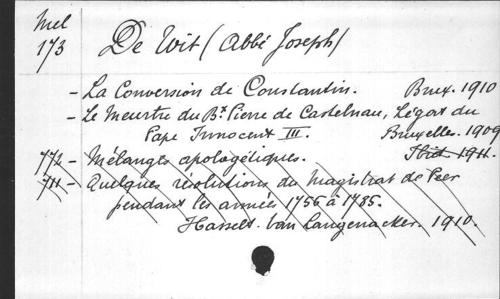 Mel
173
De Wit (Abbé Joseph)
- La Conversion de Constantin. Brux. 1910
- Le Meurtre du Bx Pierre de Castelnau, Légat du
Pape Innocent III. Bruxelles. 1909
772 - Mélanges apologétiques. Ibid. 1911.
711 - Quelques résolutions du magistrat de Peer
pendant les années 1756 à 1785.
Hasselt. Van Langenacker. 1910.